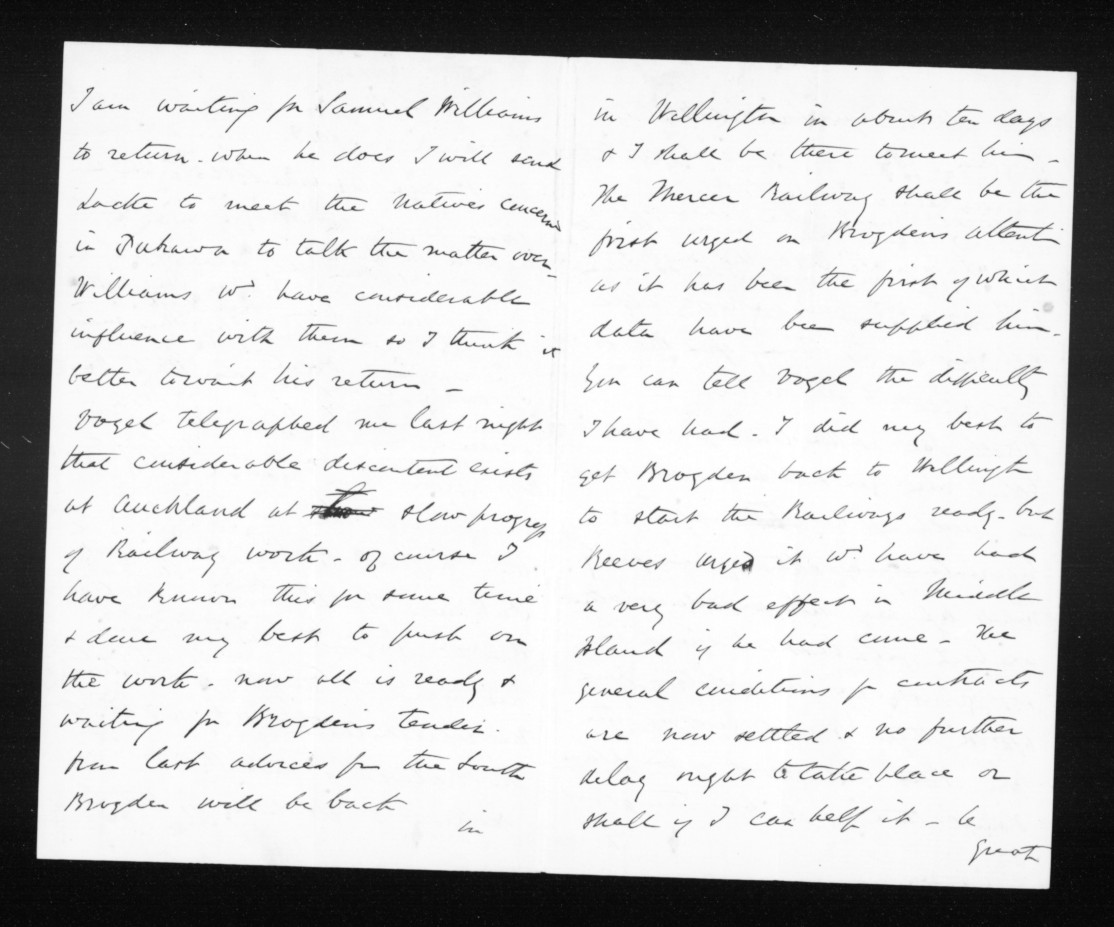 I am waiting for Samuel Williams
to return. when he does I will send
Locke to meet the Natives concerned
in Tukawa to talk the matter over -
Williams wd. have considerable
influence with them so I think it
better to wait his return -
Vogel telegraphed me last night
that considerable discontent exists
at Auckland at slow progress
of Railway work - of course I
have known this for some time
& done my best to push on
the work. now all is ready &
waiting for Brogdens tender.
from last advices fm the South
Brogden will be back
in
in Wellington in about ten days
& I shall be there to meet him -
The Mercer Railway shall be the
first urged on Brogdens attenti
as it has been the first of which
data have been supplied him -
You can tell Vogel the difficulty
I have had. I did my best to
get Brogden back to Wellington
to start the Railways ready - but
Reeves urged it wd have had
a very bad effect in Middle
Island if he had come - The
general conditions for contracts
are now settled & no further
delay ought to take place or
shall if I can help it -
Great